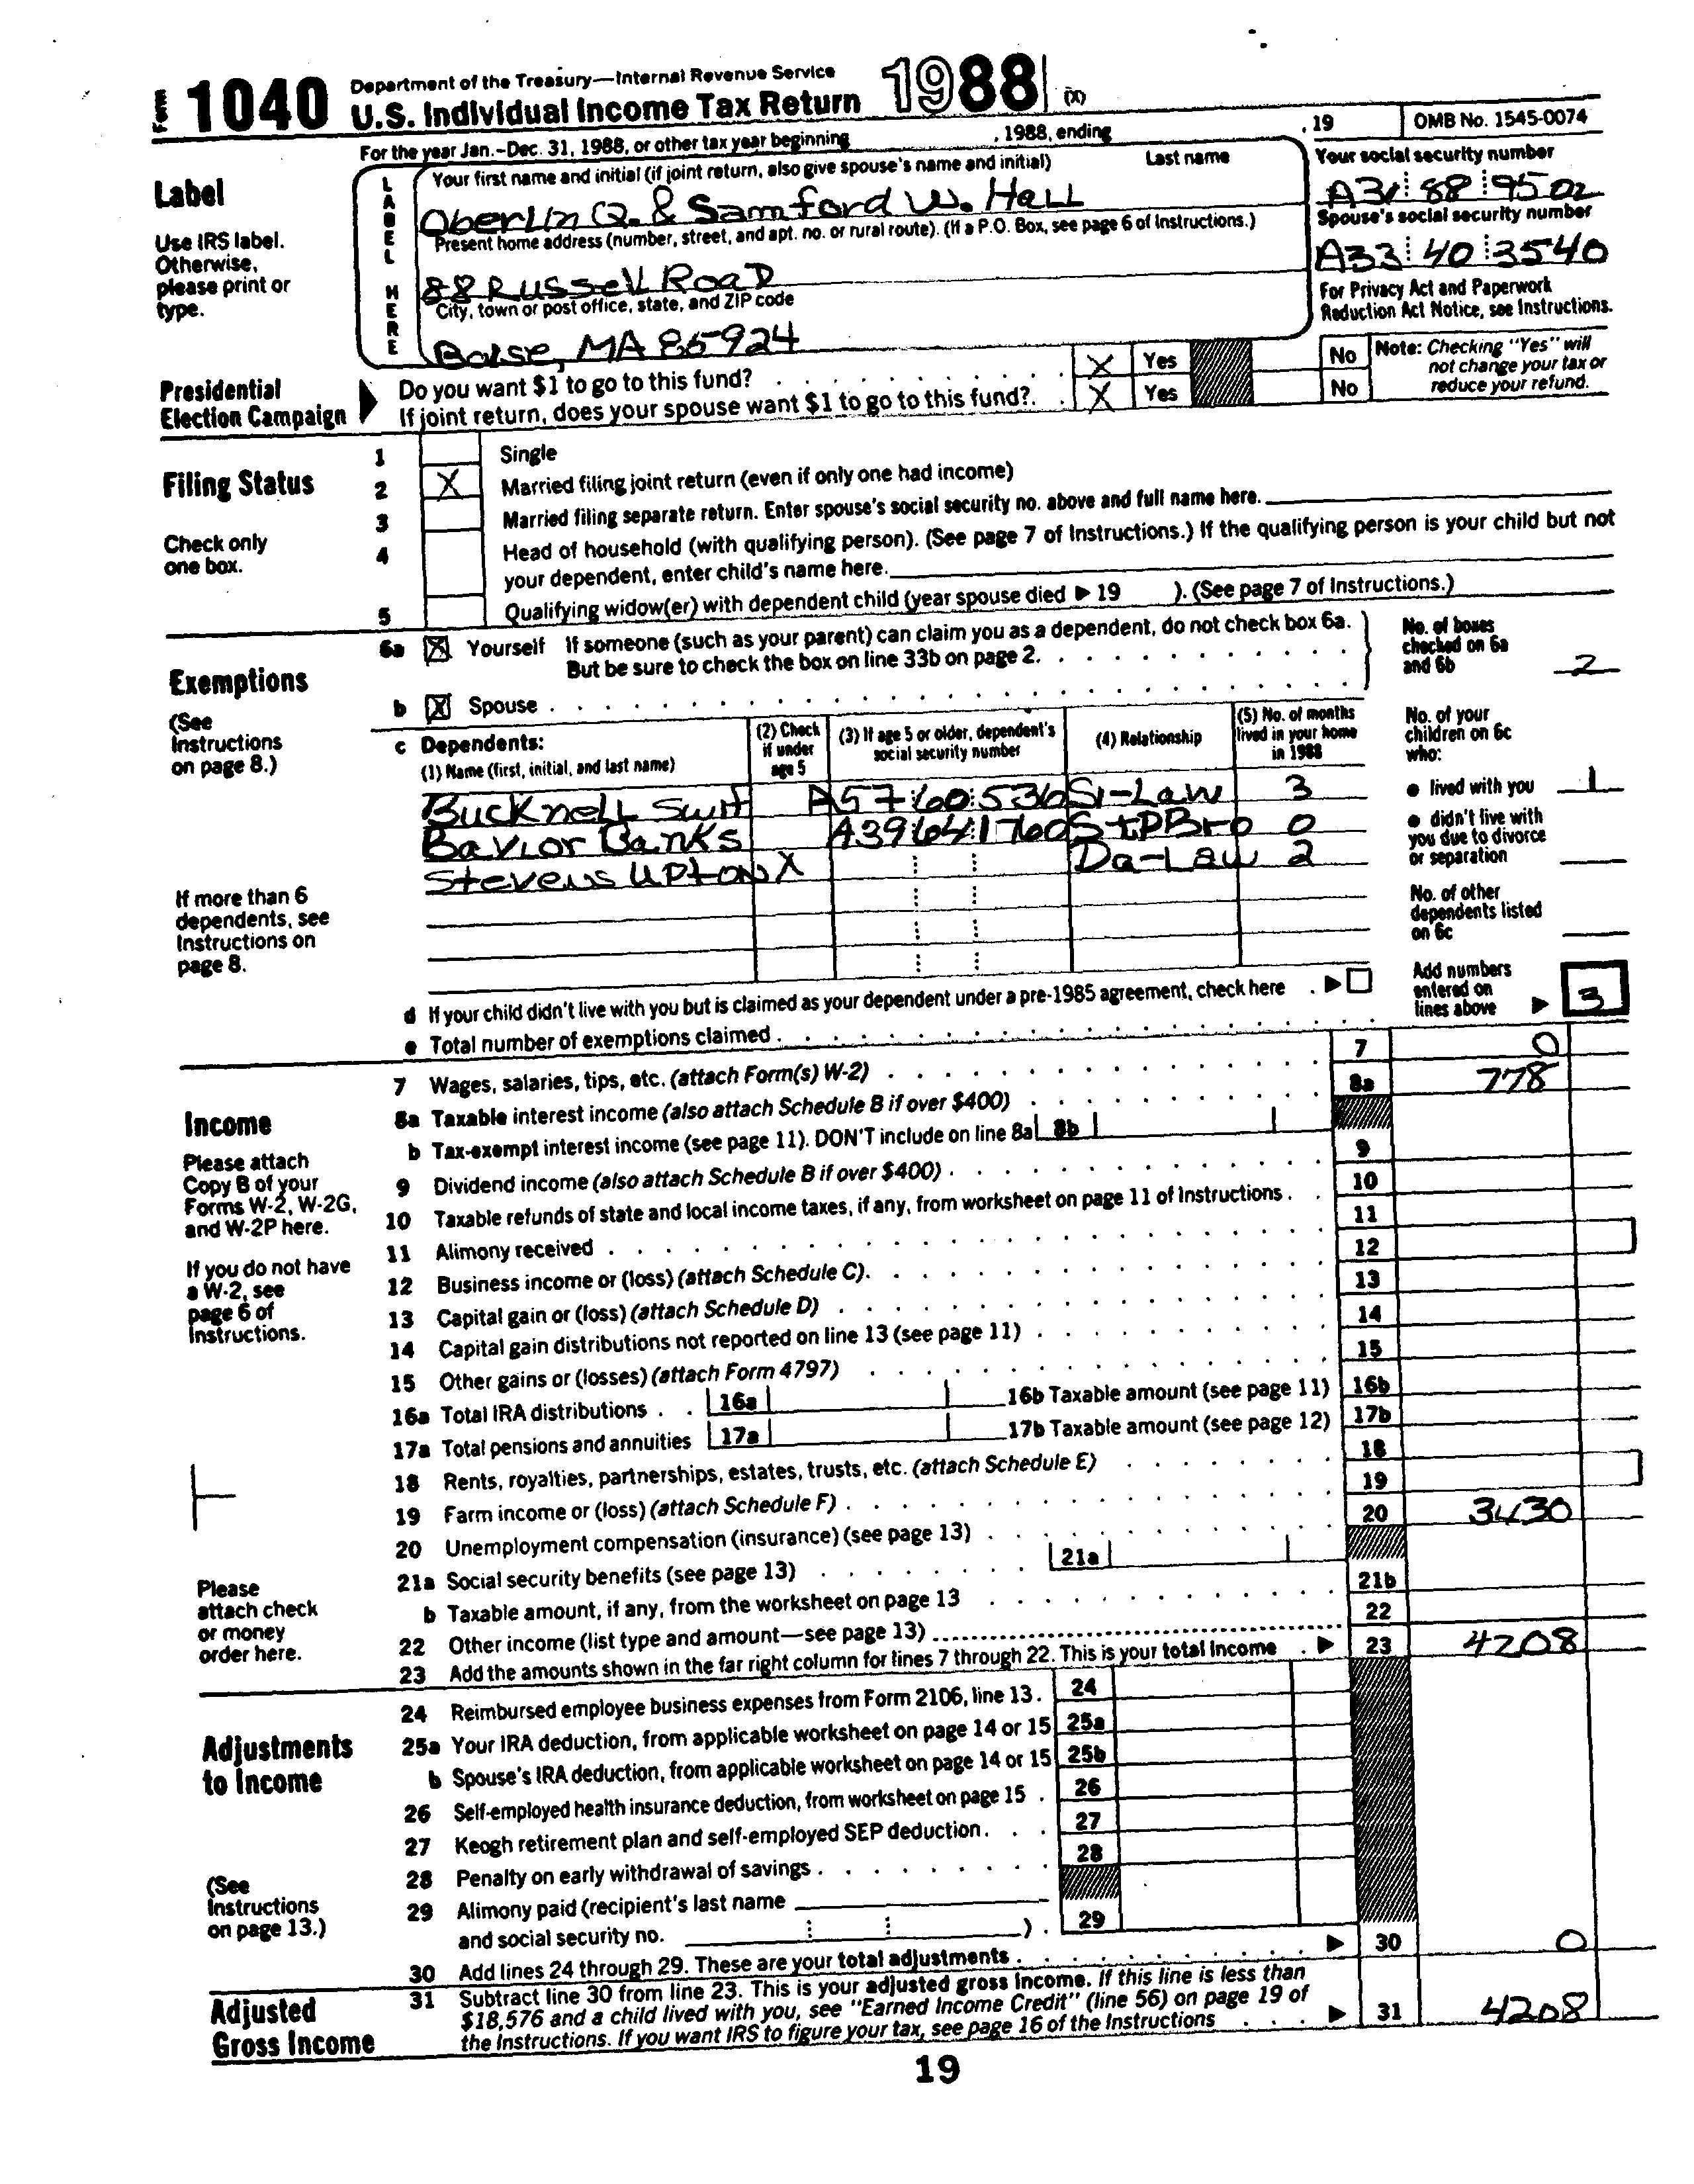 Form 1040 Department of the Treasury—Internal Revenue Service
U.S. Individual Income Tax Return 1988 (X)
For the year Jan.–Dec. 31, 1988, or other tax year beginning , 1988, ending , 19 OMB No. 1545-0074
Label
Use IRS label.
Otherwise,
please print or
type.
LABEL HERE
Your first name and initial (if joint return, also give spouse's name and initial) Last name
Oberlin Q. & Samford W. Hall
Present home address (number, street, and apt. no. or rural route). (If a P.O. Box, see page 6 of Instructions.)
88 Russell Road
City, town or post office, state, and ZIP code
Boise, MA 85924
Your social security number
A31 88 9502
Spouse's social security number
A33 40 3540
For Privacy Act and Paperwork
Reduction Act Notice, see Instructions.
Presidential
Election Campaign
Do you want $1 to go to this fund? X Yes No
If joint return, does your spouse want $1 to go to this fund? X Yes No
Note: Checking "Yes" will
not change your tax or
reduce your refund.
Filing Status
Check only
one box.
1 Single
2 X Married filing joint return (even if only one had income)
3 Married filing separate return. Enter spouse's social security no. above and full name here.
4 Head of household (with qualifying person). (See page 7 of Instructions.) If the qualifying person is your child but not
your dependent, enter child's name here.
5 Qualifying widow(er) with dependent child (year spouse died ▶ 19 ). (See page 7 of Instructions.)
Exemptions
(See
Instructions
on page 8.)
If more than 6
dependents, see
Instructions on
page 8.
6a X Yourself If someone (such as your parent) can claim you as a dependent, do not check box 6a.
But be sure to check the box on line 33b on page 2.
b X Spouse
No. of boxes
checked on 6a
and 6b 2
c Dependents:
(1) Name (first, initial, and last name)
(2) Check
if under
age 5
(3) If age 5 or older, dependent's
social security number
(4) Relationship
(5) No. of months
lived in your home
in 1988
Bucknell Swif A57 60 536 Si-Law 3
Baylor Banks A39 64 1760 StPBro 0
Stevens Upton X Da-Law 2
No. of your
children on 6c
who:
● lived with you 1
● didn't live with
you due to divorce
or separation
No. of other
dependents listed
on 6c
Add numbers
entered on
lines above ▶ 3
d If your child didn't live with you but is claimed as your dependent under a pre-1985 agreement, check here ▶
e Total number of exemptions claimed
Income
Please attach
Copy B of your
Forms W-2, W-2G,
and W-2P here.
If you do not have
a W-2, see
page 6 of
Instructions.
Please
attach check
or money
order here.
7 Wages, salaries, tips, etc. (attach Form(s) W-2) 7 0
8a Taxable interest income (also attach Schedule B if over $400) 8a 778
b Tax-exempt interest income (see page 11). DON'T include on line 8a 8b
9 Dividend income (also attach Schedule B if over $400) 9
10 Taxable refunds of state and local income taxes, if any, from worksheet on page 11 of Instructions 10
11 Alimony received 11
12 Business income or (loss) (attach Schedule C) 12
13 Capital gain or (loss) (attach Schedule D) 13
14 Capital gain distributions not reported on line 13 (see page 11) 14
15 Other gains or (losses) (attach Form 4797) 15
16a Total IRA distributions 16a 16b Taxable amount (see page 11) 16b
17a Total pensions and annuities 17a 17b Taxable amount (see page 12) 17b
18 Rents, royalties, partnerships, estates, trusts, etc. (attach Schedule E) 18
19 Farm income or (loss) (attach Schedule F) 19
20 Unemployment compensation (insurance) (see page 13) 20 3430
21a Social security benefits (see page 13) 21a
b Taxable amount, if any, from the worksheet on page 13 21b
22 Other income (list type and amount—see page 13) 22
23 Add the amounts shown in the far right column for lines 7 through 22. This is your total income ▶ 23 4208
Adjustments
to Income
(See
Instructions
on page 13.)
24 Reimbursed employee business expenses from Form 2106, line 13 24
25a Your IRA deduction, from applicable worksheet on page 14 or 15 25a
b Spouse's IRA deduction, from applicable worksheet on page 14 or 15 25b
26 Self-employed health insurance deduction, from worksheet on page 15 26
27 Keogh retirement plan and self-employed SEP deduction 27
28 Penalty on early withdrawal of savings 28
29 Alimony paid (recipient's last name
and social security no. ) 29
30 Add lines 24 through 29. These are your total adjustments ▶ 30 0
Adjusted
Gross Income
31 Subtract line 30 from line 23. This is your adjusted gross income. If this line is less than
$18,576 and a child lived with you, see "Earned Income Credit" (line 56) on page 19 of
the Instructions. If you want IRS to figure your tax, see page 16 of the Instructions ▶ 31 4208
19